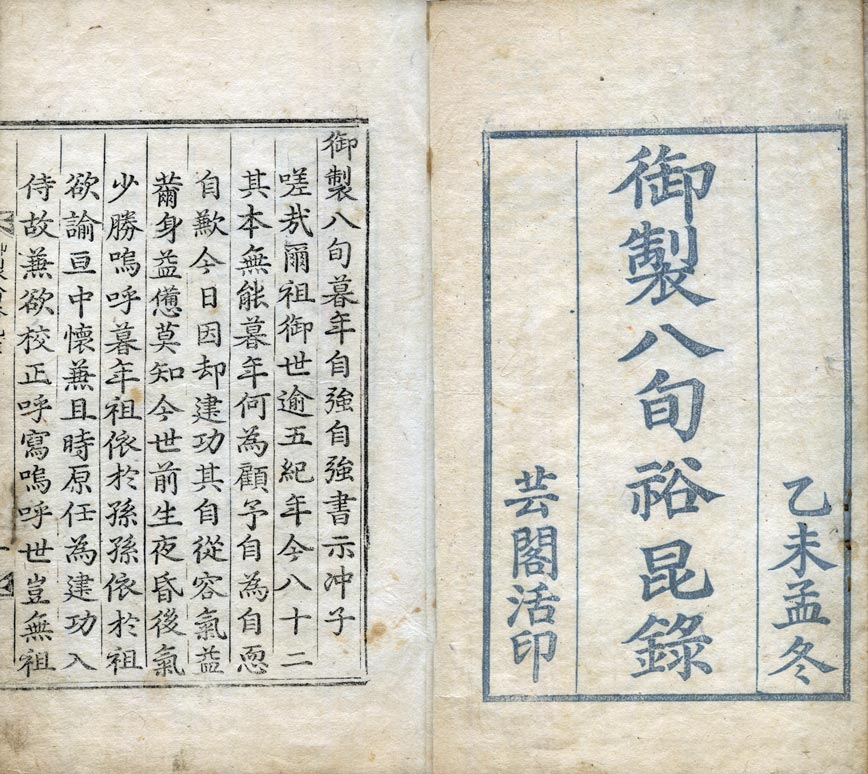 乙未孟冬
御製八旬裕昆錄
芸閣活印
御製八旬暮年自強自強書示冲子
嗟哉爾祖御世逾五紀年今八十二
其本無能暮年何為顧予自為自恧
自歎今日因却建功其自從容氣益
薾身益憊莫知今世前生夜昏後氣
少勝嗚呼暮年祖依於孫孫依於祖
欲諭亘中懷兼且時原任為建功入
侍故兼欲校正呼寫嗚呼世豈無祖